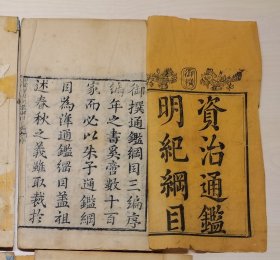 資治通鑑
明紀綱目
御撰通鑑綱目三編序
編年之書奚啻數十百
家而必以朱子通鑑綱
目為準通鑑綱目蓋祖
述春秋之義雖取裁於